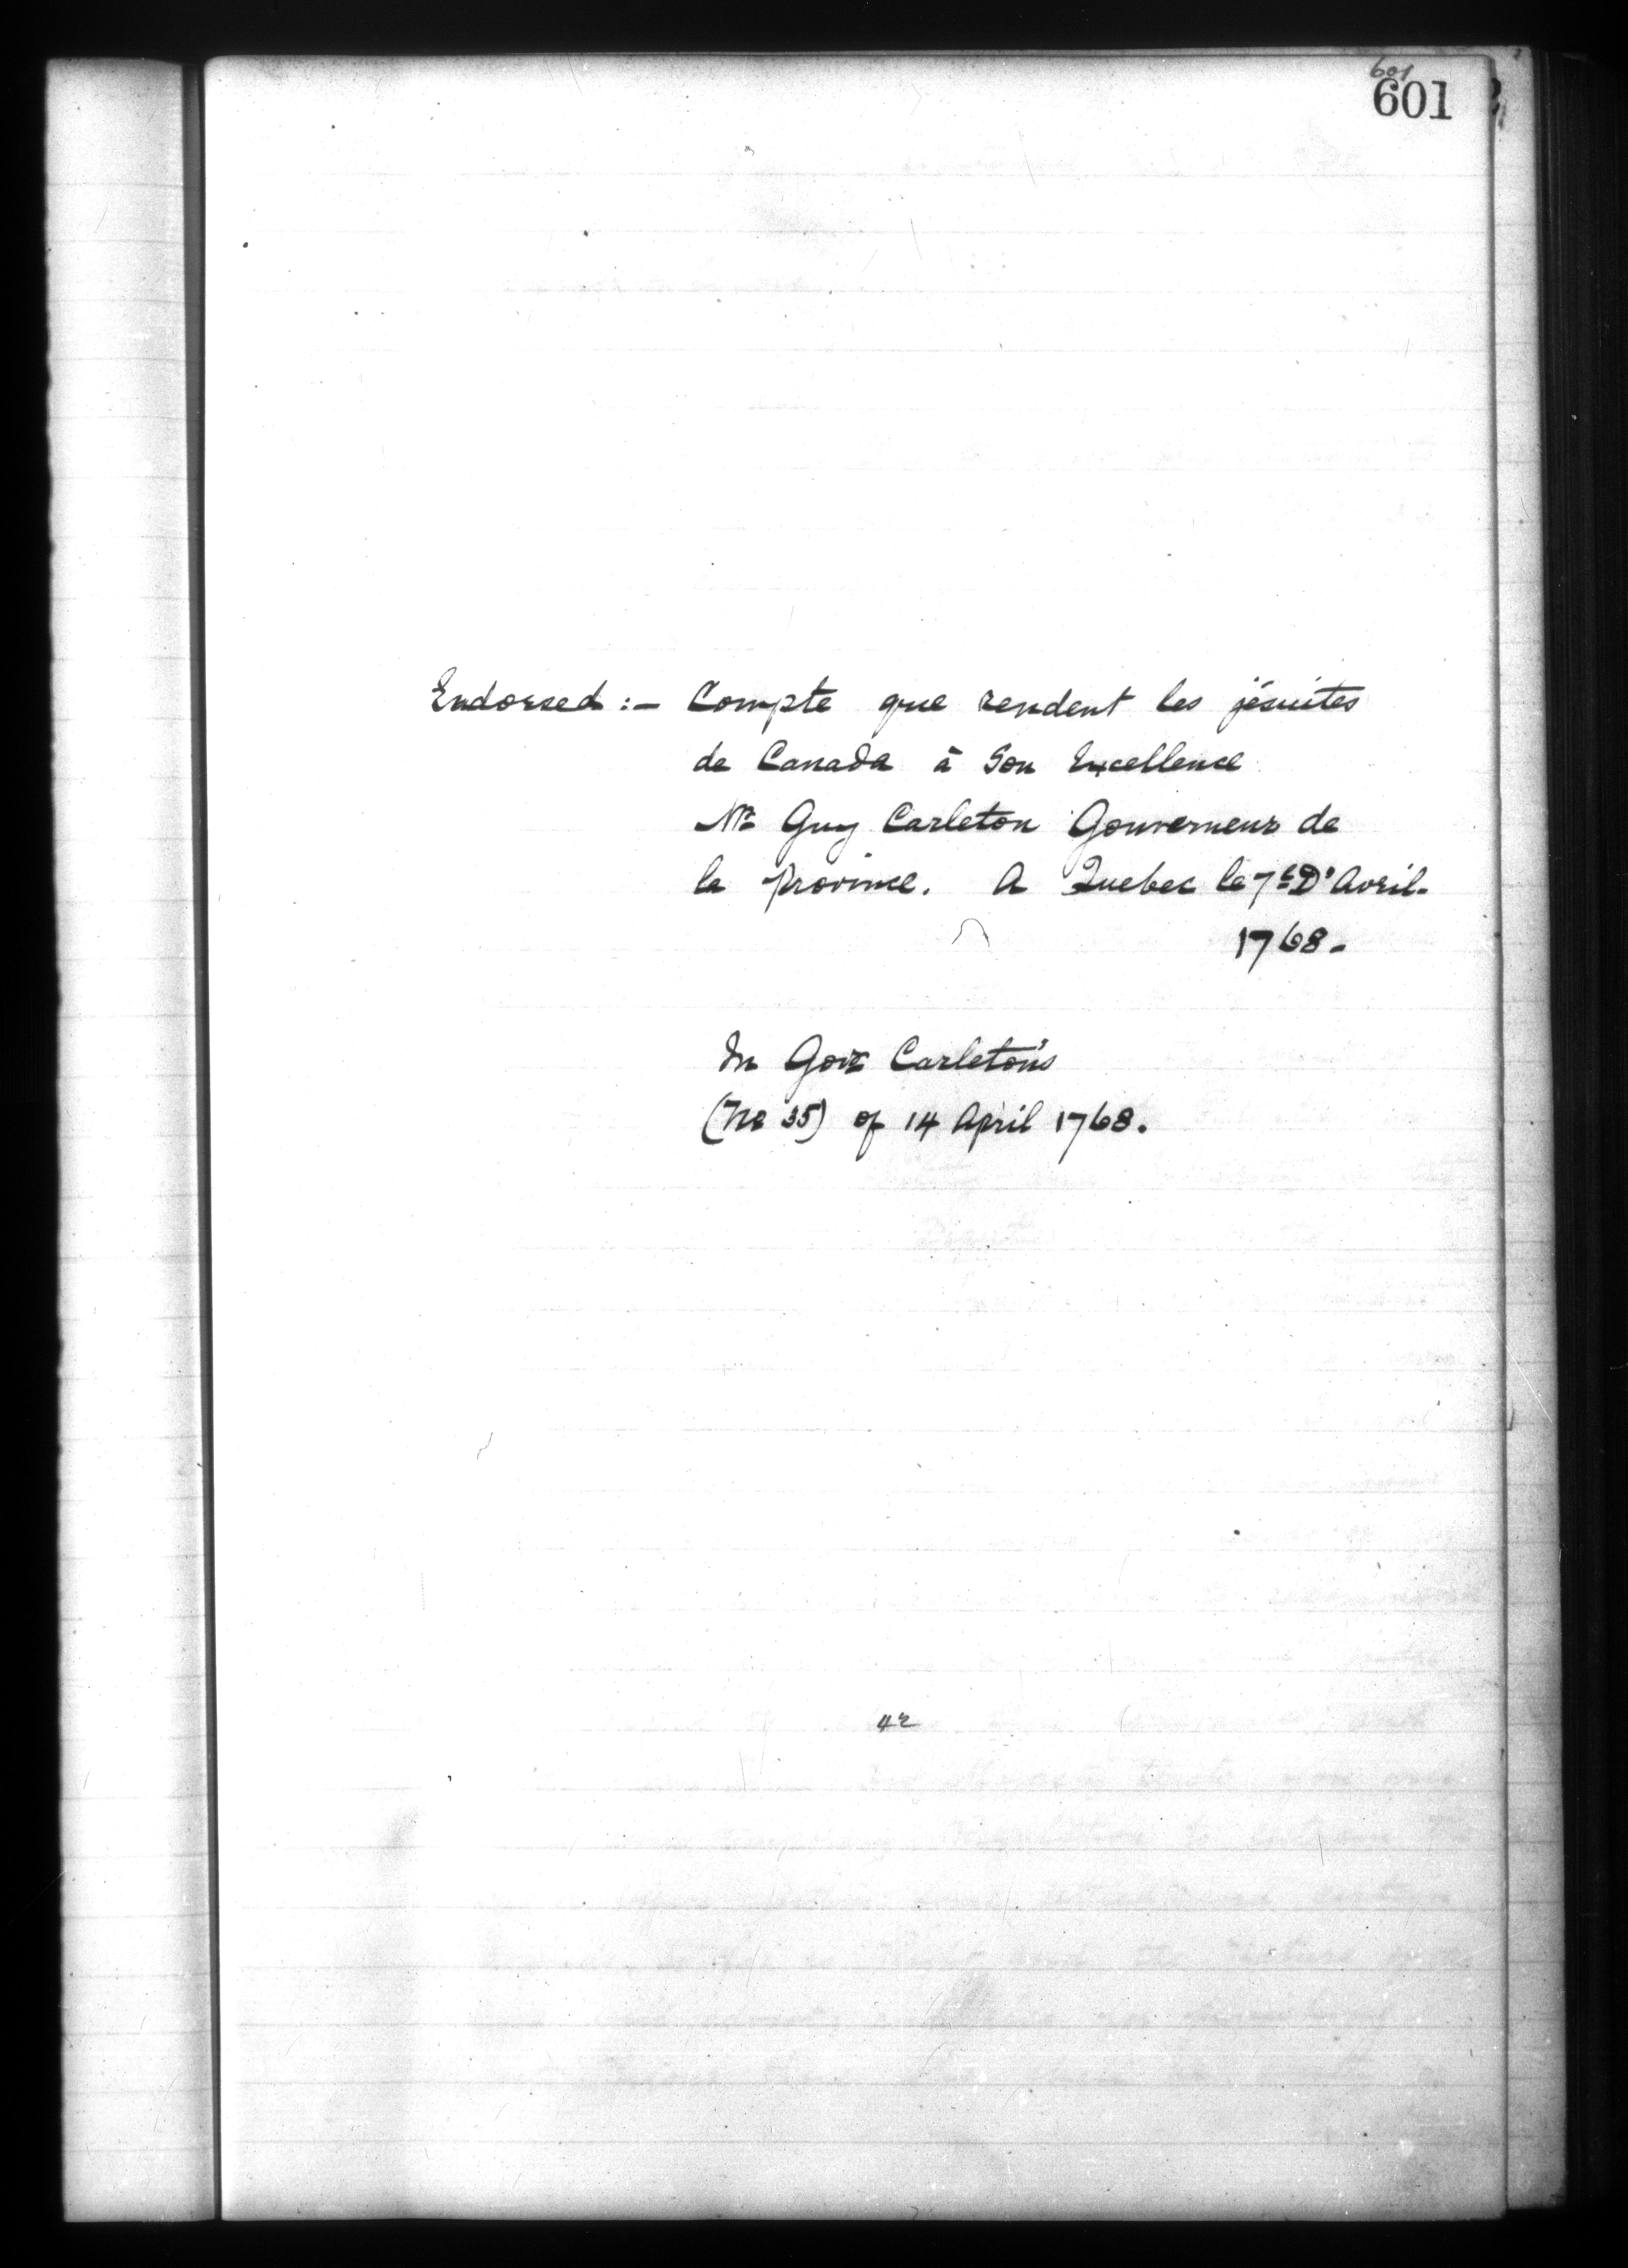 601
601
Endorsed :- Compte que rendent les jésuites
de Canada à Son Excellence
Mr Guy Carleton Gouverneur de
la province. A Quebec le 7e D'Avril.
1768.
In Govr Carleton's
(No 35) of 14 April 1768.
42